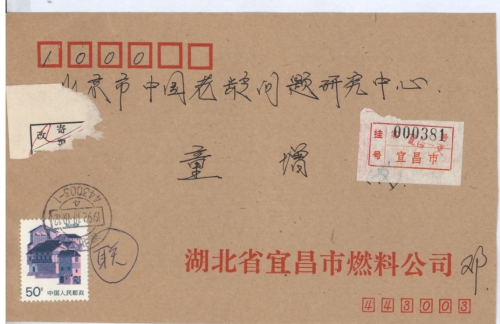 10000
北京市中国老龄问题研究中心.
改 寄
挂号 000381
宜昌市
童增
443003-1
50分 中国人民邮政
湖北省宜昌市燃料公司 邓
443003